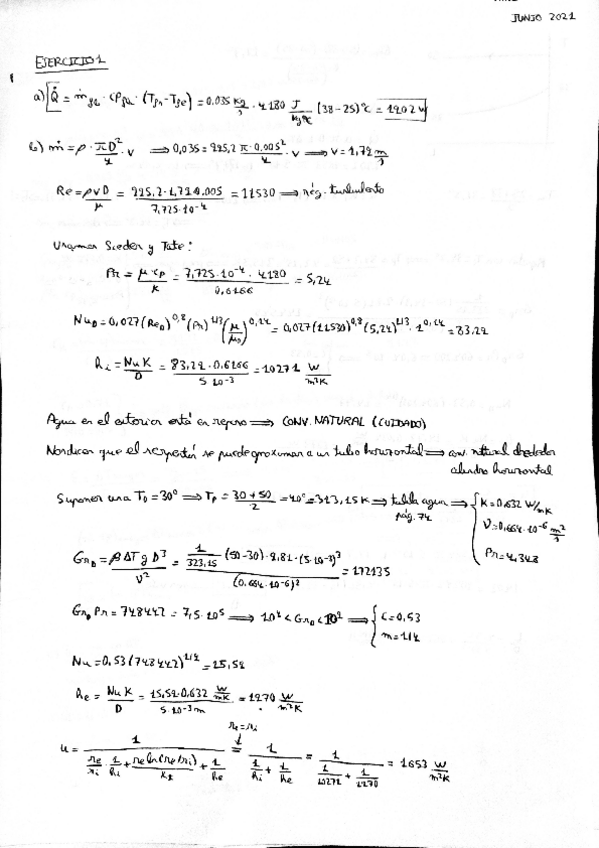 JUNIO 2021
EJERCICIO 1
a) Q̇ = ṁ_fr · cp_fr · (Tfs - Tfe) = 0.035 kg/s · 4180 J/kgºC (38-25)ºC = 1902 W
b) ṁ = ρ · πD²/4 · v ⟹ 0,035 = 995,2 π·0.005²/4 · v ⟹ v = 1,79 m/s
Re = ρvD/μ = 995,2·1,79·0.005/7,725·10⁻⁴ = 11530 ⟹ rég. turbulento
Usamos Sieder y Tate:
Pr = μ·cp/k = 7,725·10⁻⁴·4180/0,6166 = 5,24
Nu_D = 0,027 (Re_D)^0,8 (Pr)^1/3 (μ/μ₀)^0,14 = 0,027 (11530)^0,8 (5,24)^1/3 · 1^0,14 = 83,29
hi = Nu K/D = 83,29·0.6166/5·10⁻³ = 10271 W/m²K
Agua en el exterior está en reposo ⟹ CONV. NATURAL (CUIDADO)
Nos dicen que el serpentín se puede aproximar a un tubo horizontal ⟹ conv. natural alrededor
cilindro horizontal
Suponer una T₀ = 30º ⟹ Tp = 30+50/2 = 40º = 313,15K ⟹ tabla agua ⟹ { K = 0,632 W/mK
pág. 74
ν = 0,664·10⁻⁶ m²/s
Pr = 4,348
Gr_D = β ΔT g D³/ν² = 1/323,15 (50-30)·9.81·(5·10⁻³)³/(0,664·10⁻⁶)² = 172135
Gr_D Pr = 748442 = 7,5·10⁵ ⟹ 10⁴ < Gr_D < 10⁹ ⟹ { C = 0,53
m = 1/4
Nu = 0,53 (748442)^1/4 = 15,59
he = Nu K/D = 15,59·0,632 W/mK/5·10⁻³ m = 1970 W/m²K
re ≈ ri
u = 1/(re/ri · 1/hi + re ln(re/ri)/k + 1/he) = 1/(1/hi + 1/he) = 1/(1/10271 + 1/1970) = 1653 W/m²K